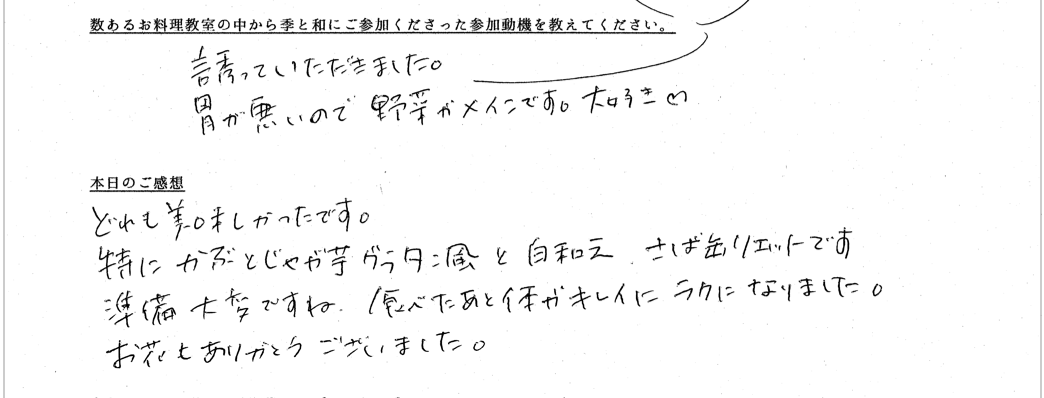 数あるお料理教室の中から季と和にご参加くださった参加動機を教えてください。
誘っていただきました。
胃が悪いので 野菜がメインです。大好き♡
本日のご感想
どれも美味しかったです。
特に かぶとじゃが芋グラタン風 と 白和え さば缶リエットです
準備 大変ですね. 食べたあと体がキレイに ラクに なりました。
お花もありがとうございました。